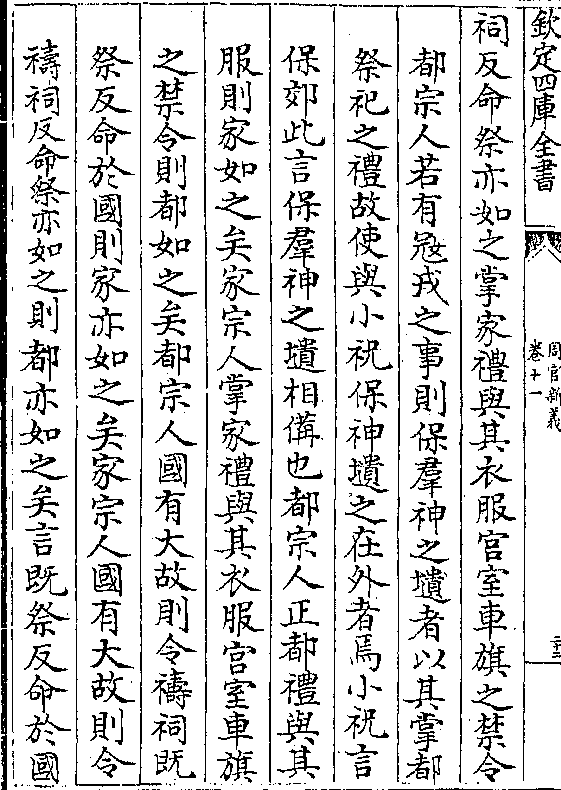 欽定四庫全書
周官新義
卷十一
祠反命祭亦如之掌家禮與其衣服宫室車旗之禁令
都宗人若有冦戎之事則保羣神之壝者以其掌都
祭祀之禮故使與小祝保神壝之在外者焉小祝言
保郊此言保羣神之壝相備也都宗人正都禮與其
服則家如之矣家宗人掌家禮與其衣服宫室車旗
之禁令則都如之矣都宗人國有大故則令禱祠既
祭反命於國則家亦如之矣家宗人國有大故則令
禱祠反命祭亦如之則都亦如之矣言既祭反命於國